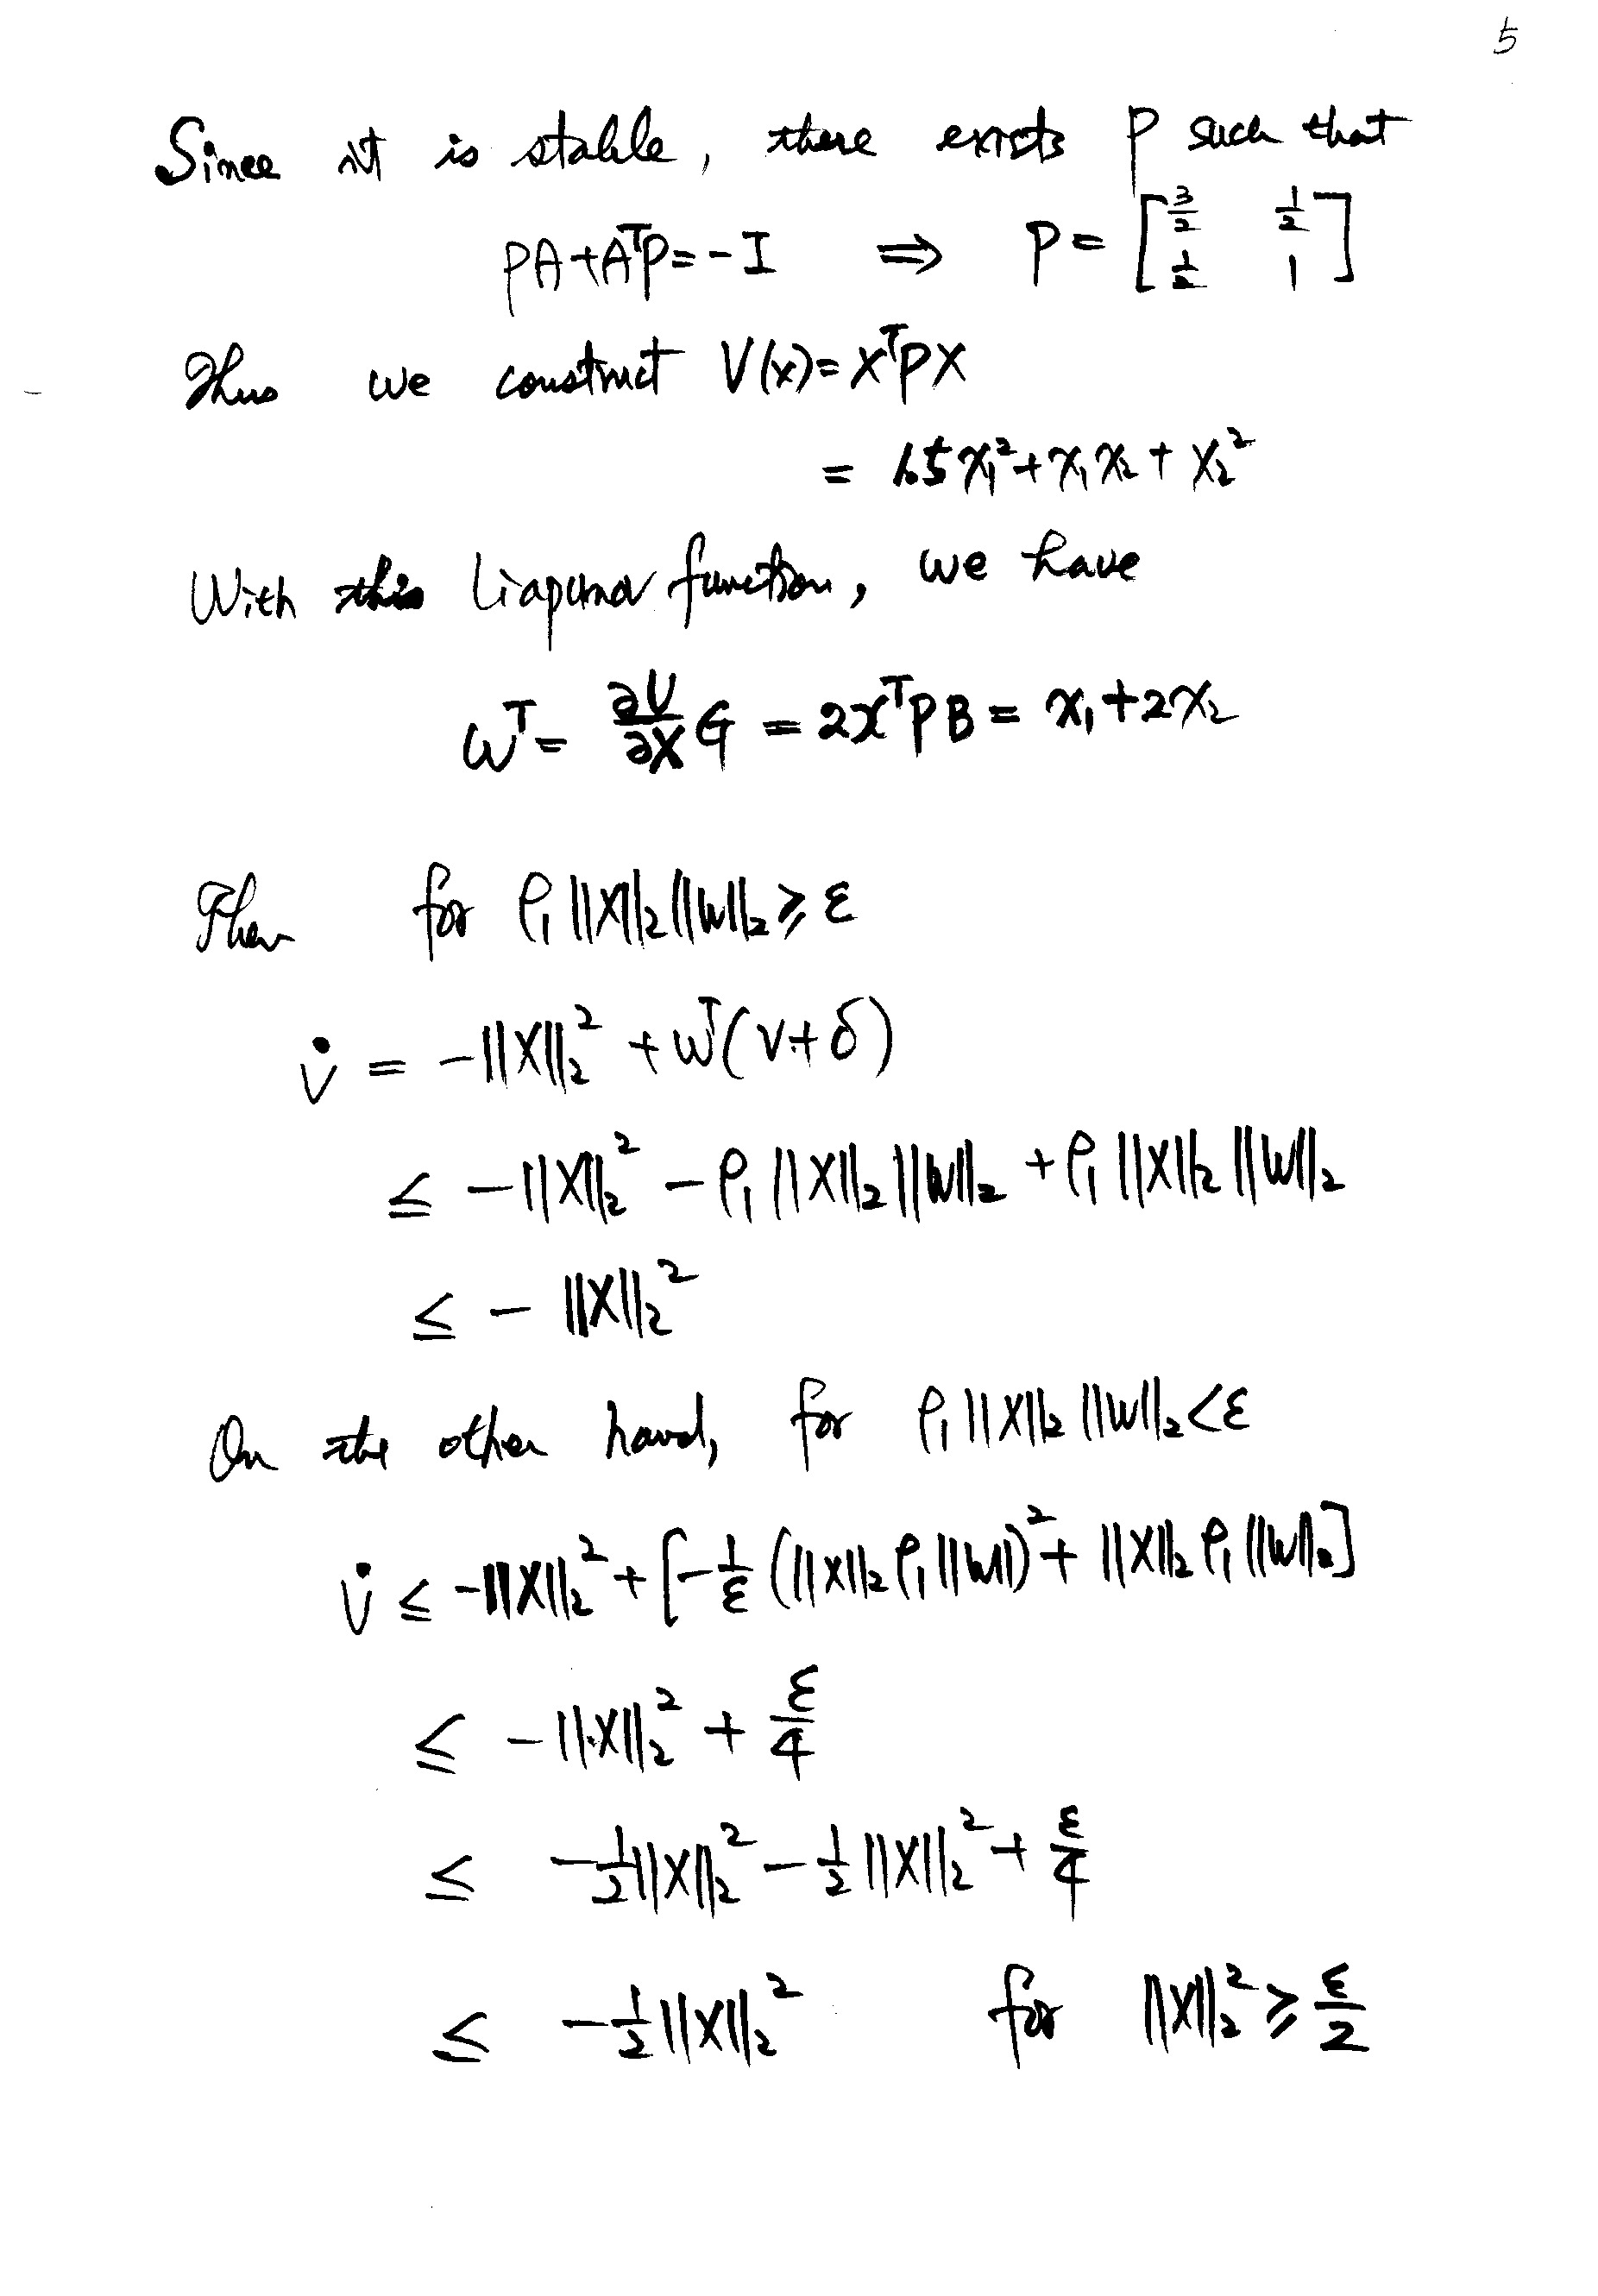 5
Since it is stable, there exists P such that
PA+AᵀP=-I ⇒ P=[3/2 1/2; 1/2 1]
Thus we construct V(x)=xᵀPx
= 1.5x₁²+x₁x₂+x₂²
With this Liapunov function, we have
wᵀ= ∂V/∂x G = 2xᵀPB = x₁+2x₂
Then for ρ₁||x||₂||w||₂ ≥ ε
V̇ = -||x||₂² + wᵀ(v+δ)
≤ -||x||₂² - ρ₁||x||₂||w||₂ + ρ₁||x||₂||w||₂
≤ -||x||₂²
On the other hand, for ρ₁||x||₂||w||₂<ε
V̇ ≤ -||x||₂² + [-1/ε (||x||₂ρ₁||w||)² + ||x||₂ρ₁||w||₂]
≤ -||x||₂² + ε/4
≤ -1/2||x||₂² - 1/2||x||₂² + ε/4
≤ -1/2||x||₂² for ||x||₂² ≥ ε/2